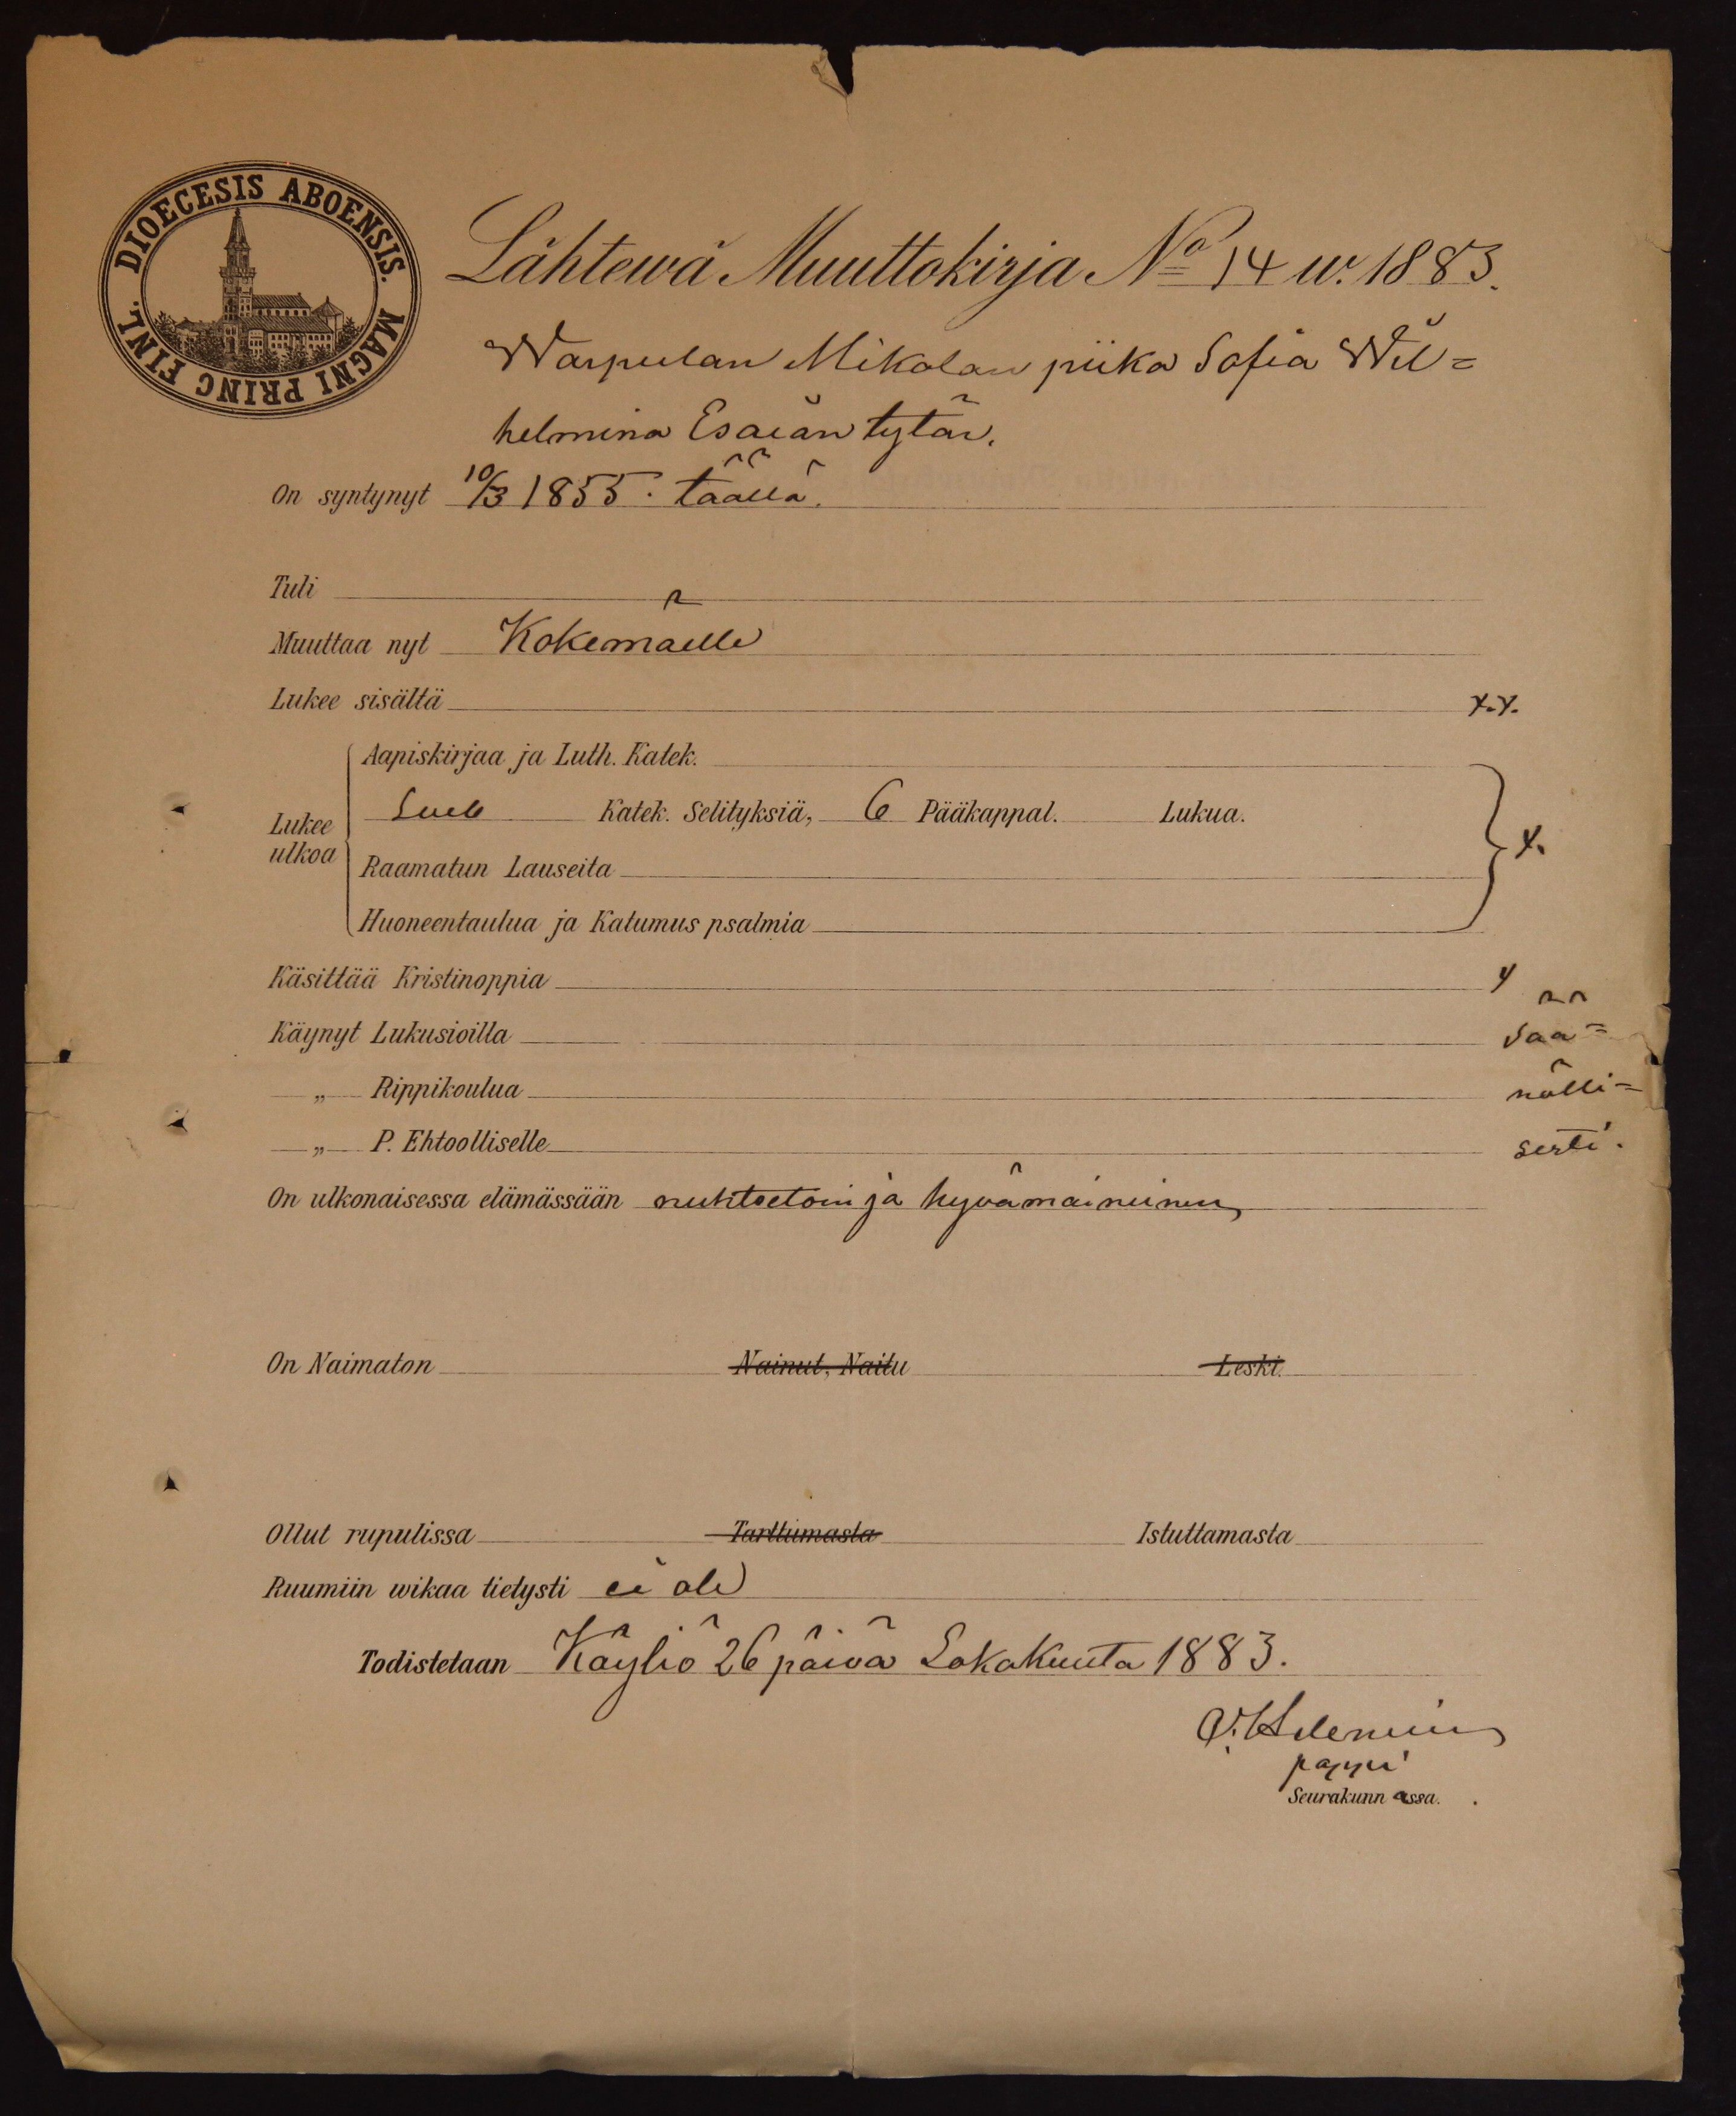 DIOECESIS ABOENSIS. MAGNI PRINC FINL.
Lähtewä Muuttokirja No 14 w. 1883.
Warpulan Mikolan piika Sofia Wil=
helmina Esaiäntytär.
On syntynyt 10/3 1855. täällä.
Tuli
Muuttaa nyt Kokemäelle
Lukee sisältä x.x.
Lukee ulkoa
Aapiskirjaa ja Luth. Katek.
Katek. Selityksiä, 6 Pääkappal. Lukua.
x.
Raamatun Lauseita
Huoneentaulua ja Katumus psalmia
Käsittää Kristinoppia x
Käynyt Lukusioilla Sää=
„ Rippikoulua nölli=
„ P. Ehtoolliselle sesti.
On ulkonaisessa elämässään nuhteetoin ja hyvämaineinen
On Naimaton Nainut, Naitu Leski.
Ollut rupulissa Tarttumasta Istuttamasta
Ruumiin wikaa tietysti ei ole
Todistetaan Köyliö 26 päivä Lokakuuta 1883.
pappi
Seurakunnassa.